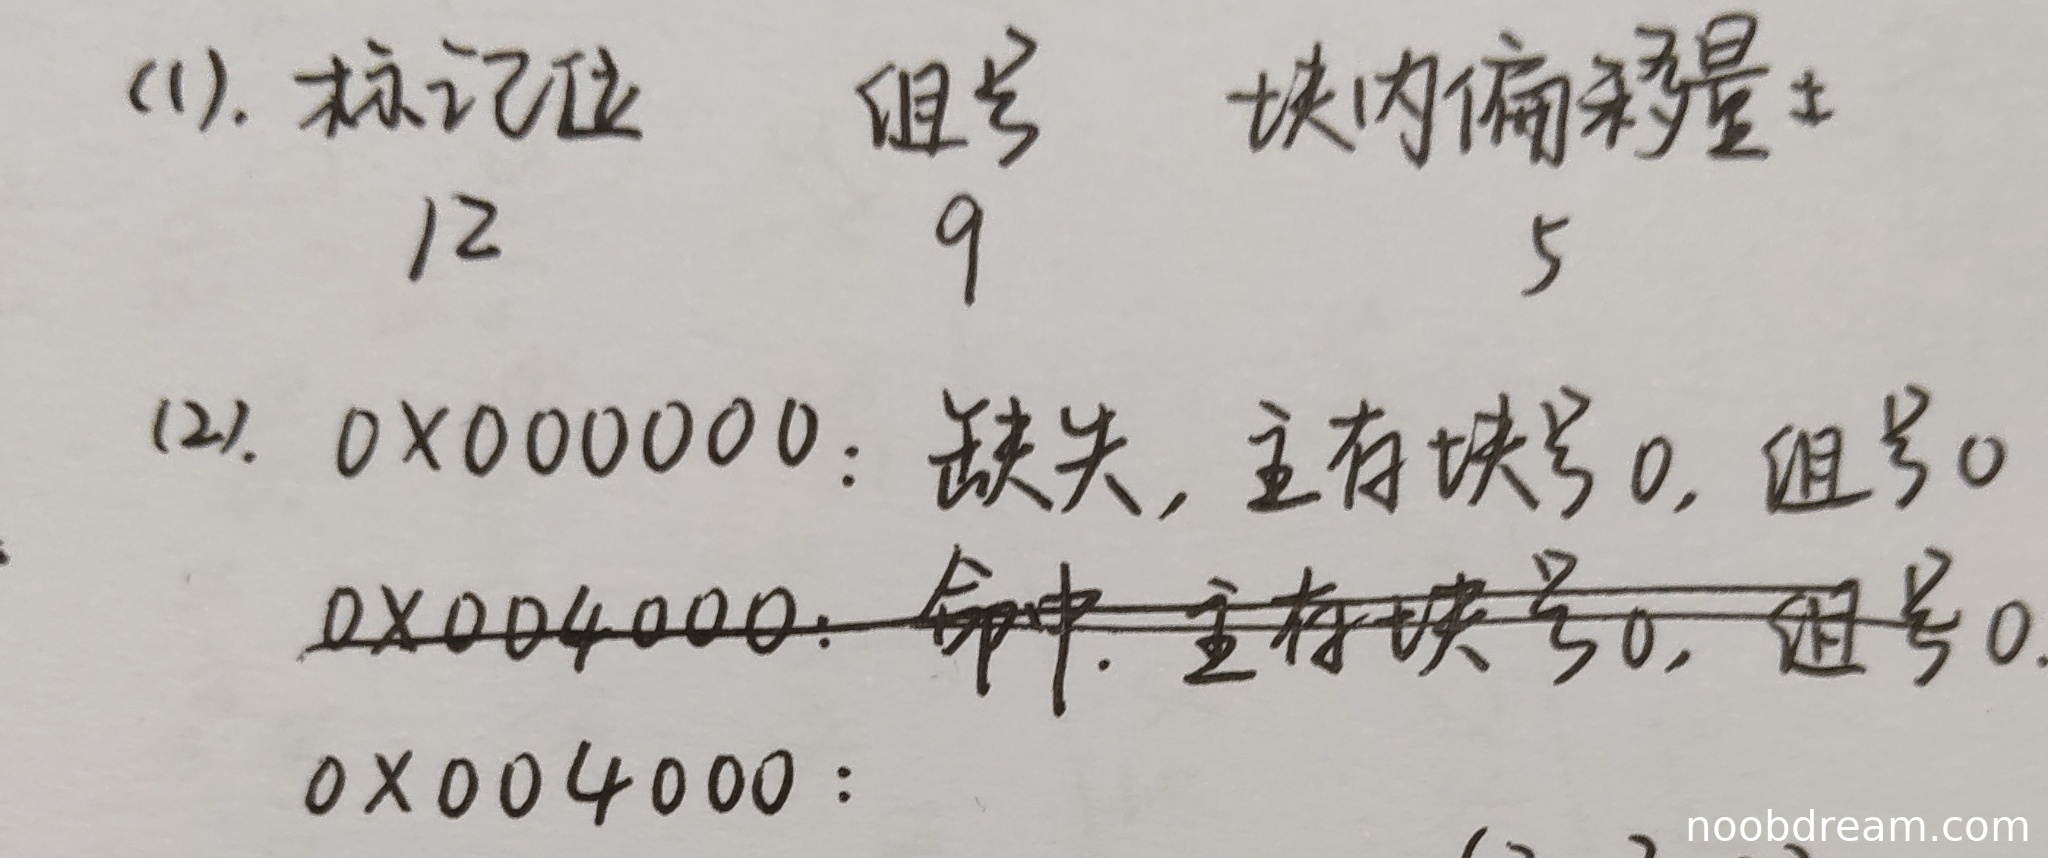 (1). 标记位 组号 块内偏移量
12 9 5
(2). 0X000000: 缺失, 主存块号0, 组号0
0X004000: 命中. 主存块号0, 组号0.
0X004000:
noobdream.com